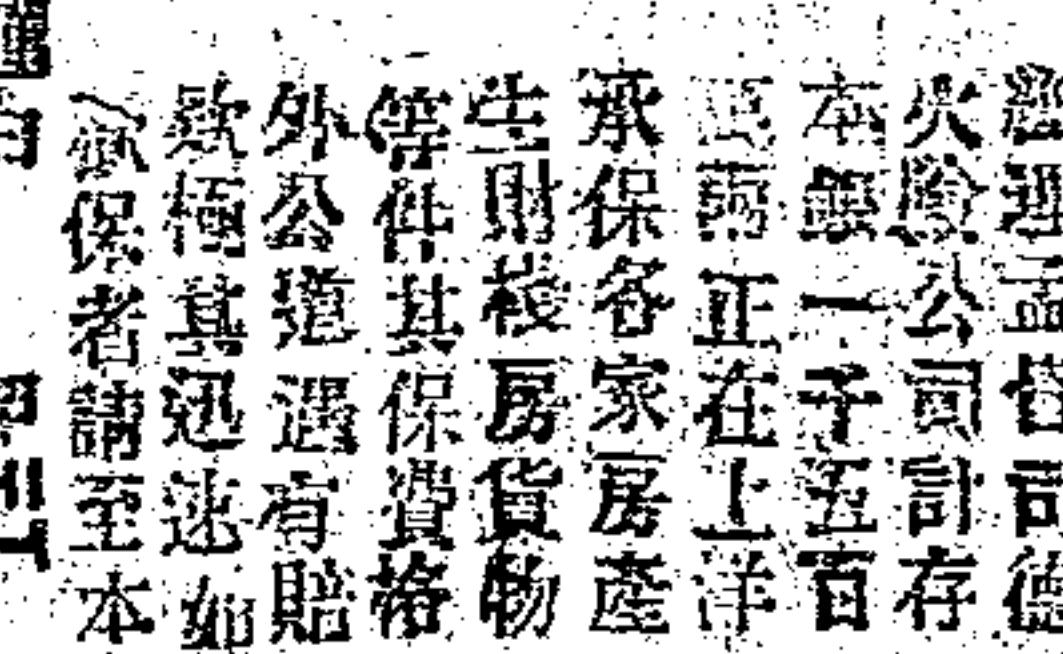 經理孟隹司德
火險公司計存
本銀一千五百
正在上洋
承保各家房產
生財棧房貨物
等件其保費格
外公道遇有賠
款極其迅速如
欲保者請至本